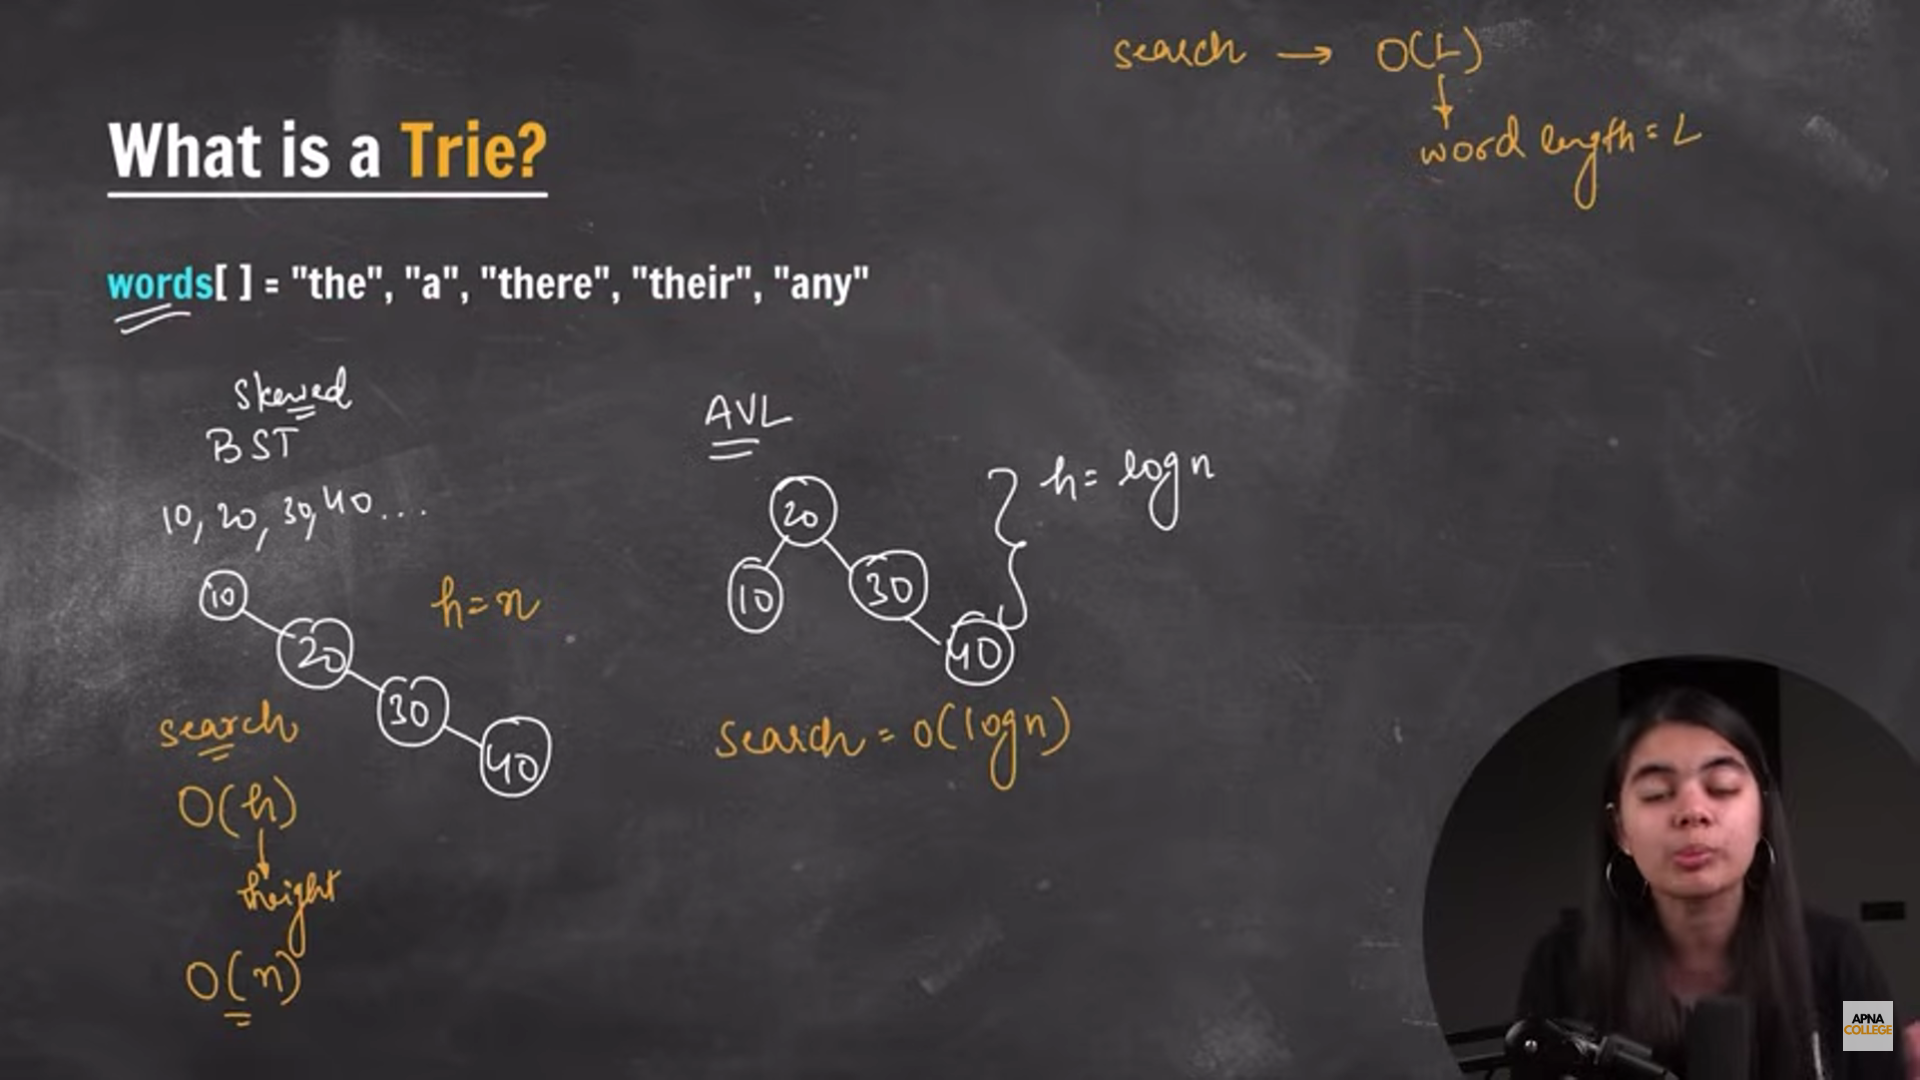 search → O(L)
word length = L
What is a Trie?
words[ ] = "the", "a", "there", "their", "any"
Skewed
BST
10, 20, 30, 40...
10
20
30
40
h=n
search
O(h)
height
O(n)
AVL
20
10
30
40
h = log n
search = O(log n)
APNA
COLLEGE